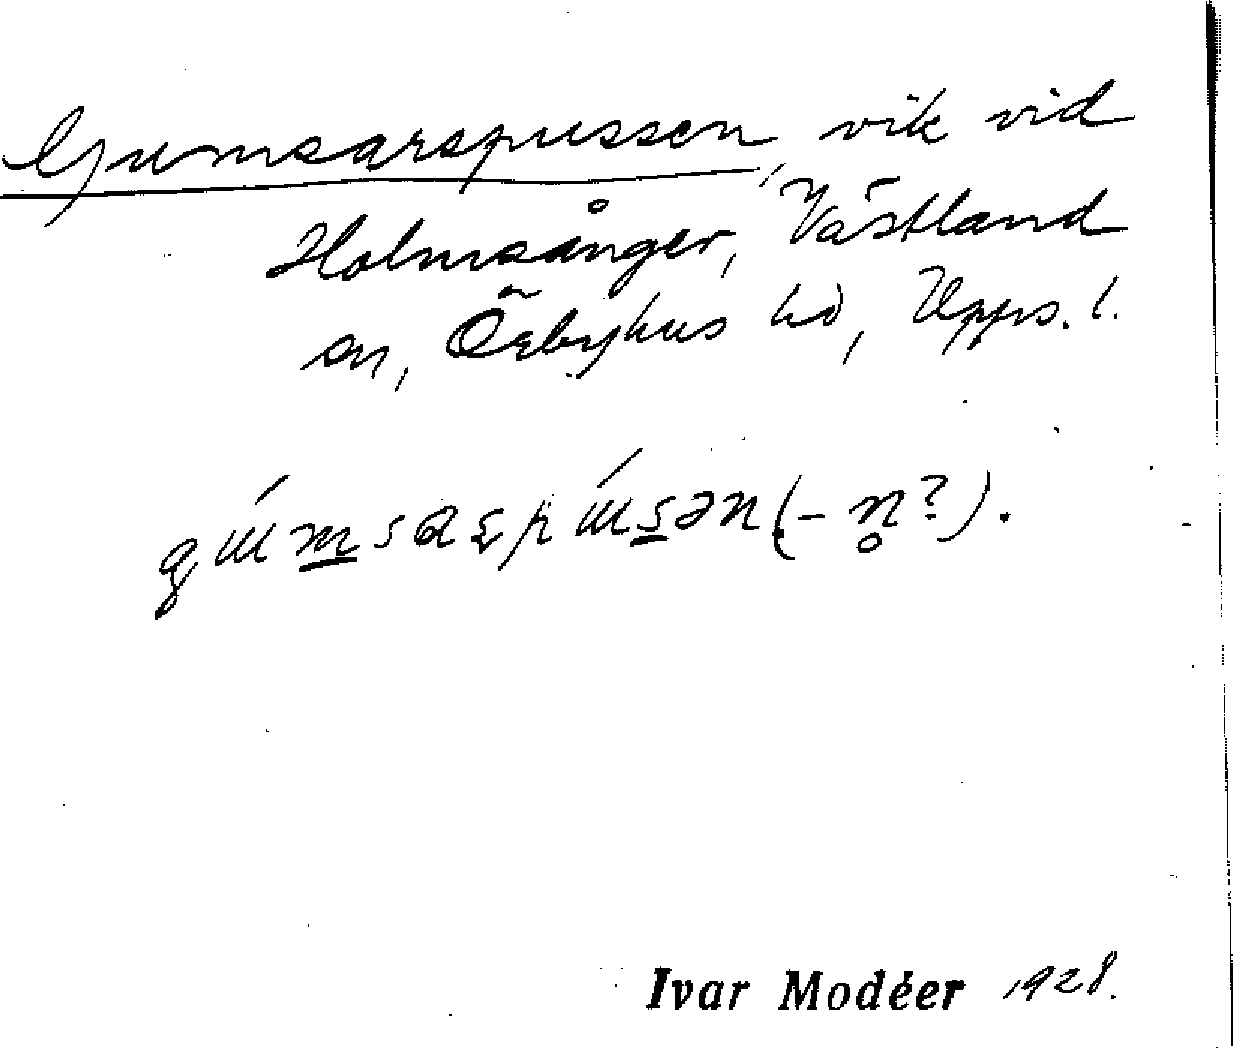 Gumsarspussen, vik vid
Holmsånger, Västland
sn, Örbyhus hd, Upps. l.
(- n̥?).
Ivar Modéer 1928.